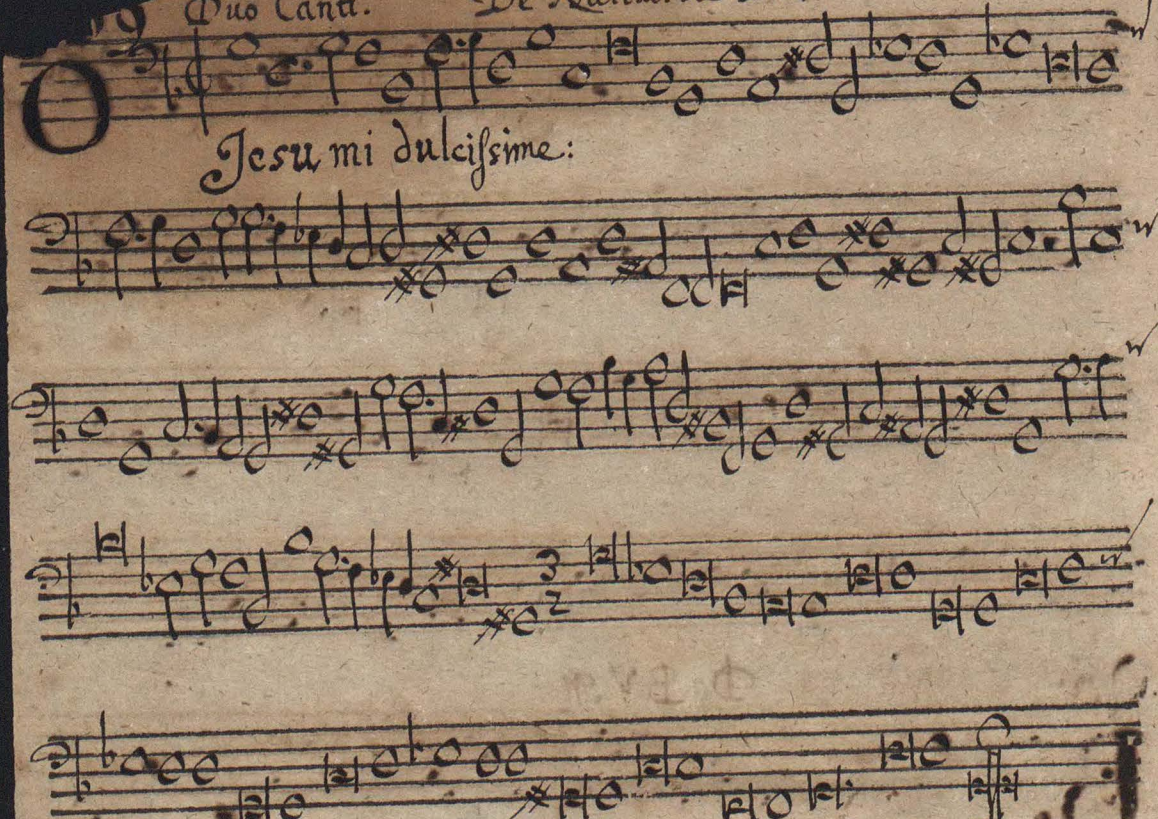 Duo Canti. De
O
Jesu mi dulcissime:
3
2